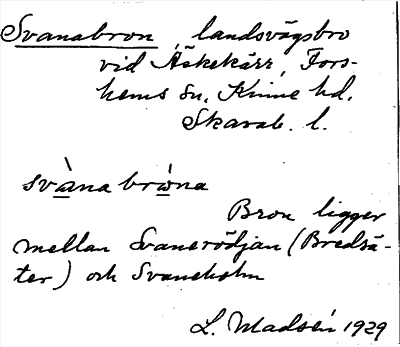 Svanabron, landsvägsbro
vid Äskekärr, Fors-
hems sn. Kinne hd.
Skarab. l.
svàna bròna
Bron ligger
mellan Svanerödjan (Bredsä-
ter) och Svaneholm
L. Madsén 1929